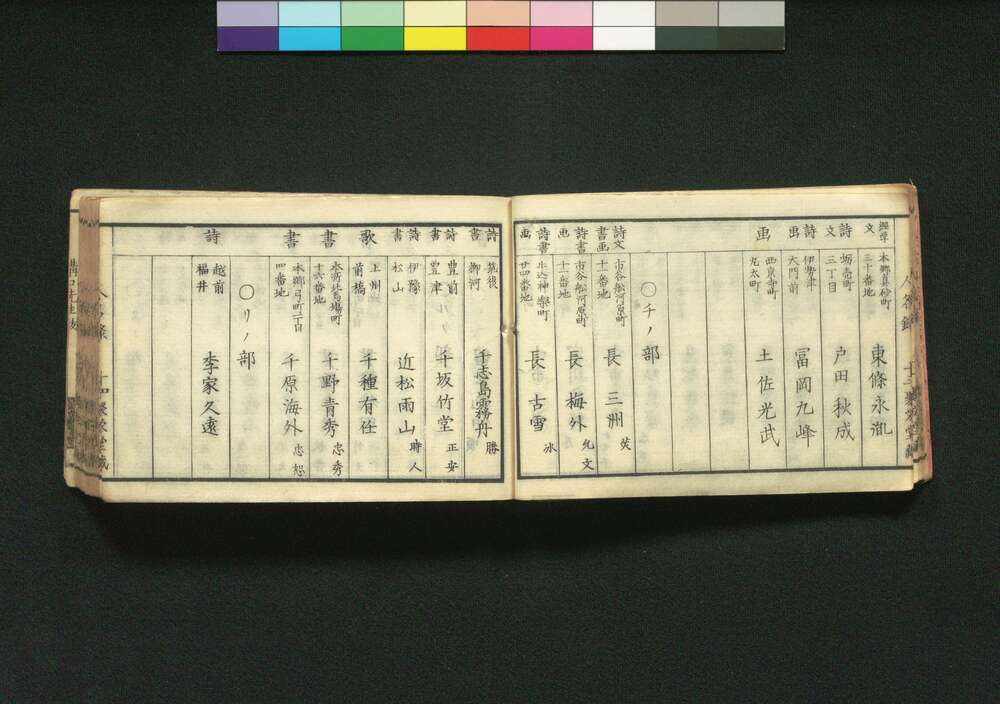 文
本郷真砂町
三十番地
東條永胤
詩文
坂壱町
三丁目
戸田秋成
詩画
伊勢津
大門前
冨岡九峰
画
西京寺町
丸太町
土佐光武
〇チノ部
詩文書画
市谷舩河原町
十一番地
長三洲
炗
詩書画
市谷舩河原町
十一番地
長梅外
允文
詩書画
牛込神楽町
廿四番地
長古雪
氷
詩書
筑後
柳河
千志島霧丹
勝
詩書
豊前
豊津
千坂竹堂
正安
詩書
伊豫
松山
近松雨山
時人
歌
上州
前橋
千種有任
書
十六番地
千野青秀
忠秀
書
本郷弓町二丁目
四番地
千原海外
忠恕
〇リノ部
詩
越前
福井
李家久遠